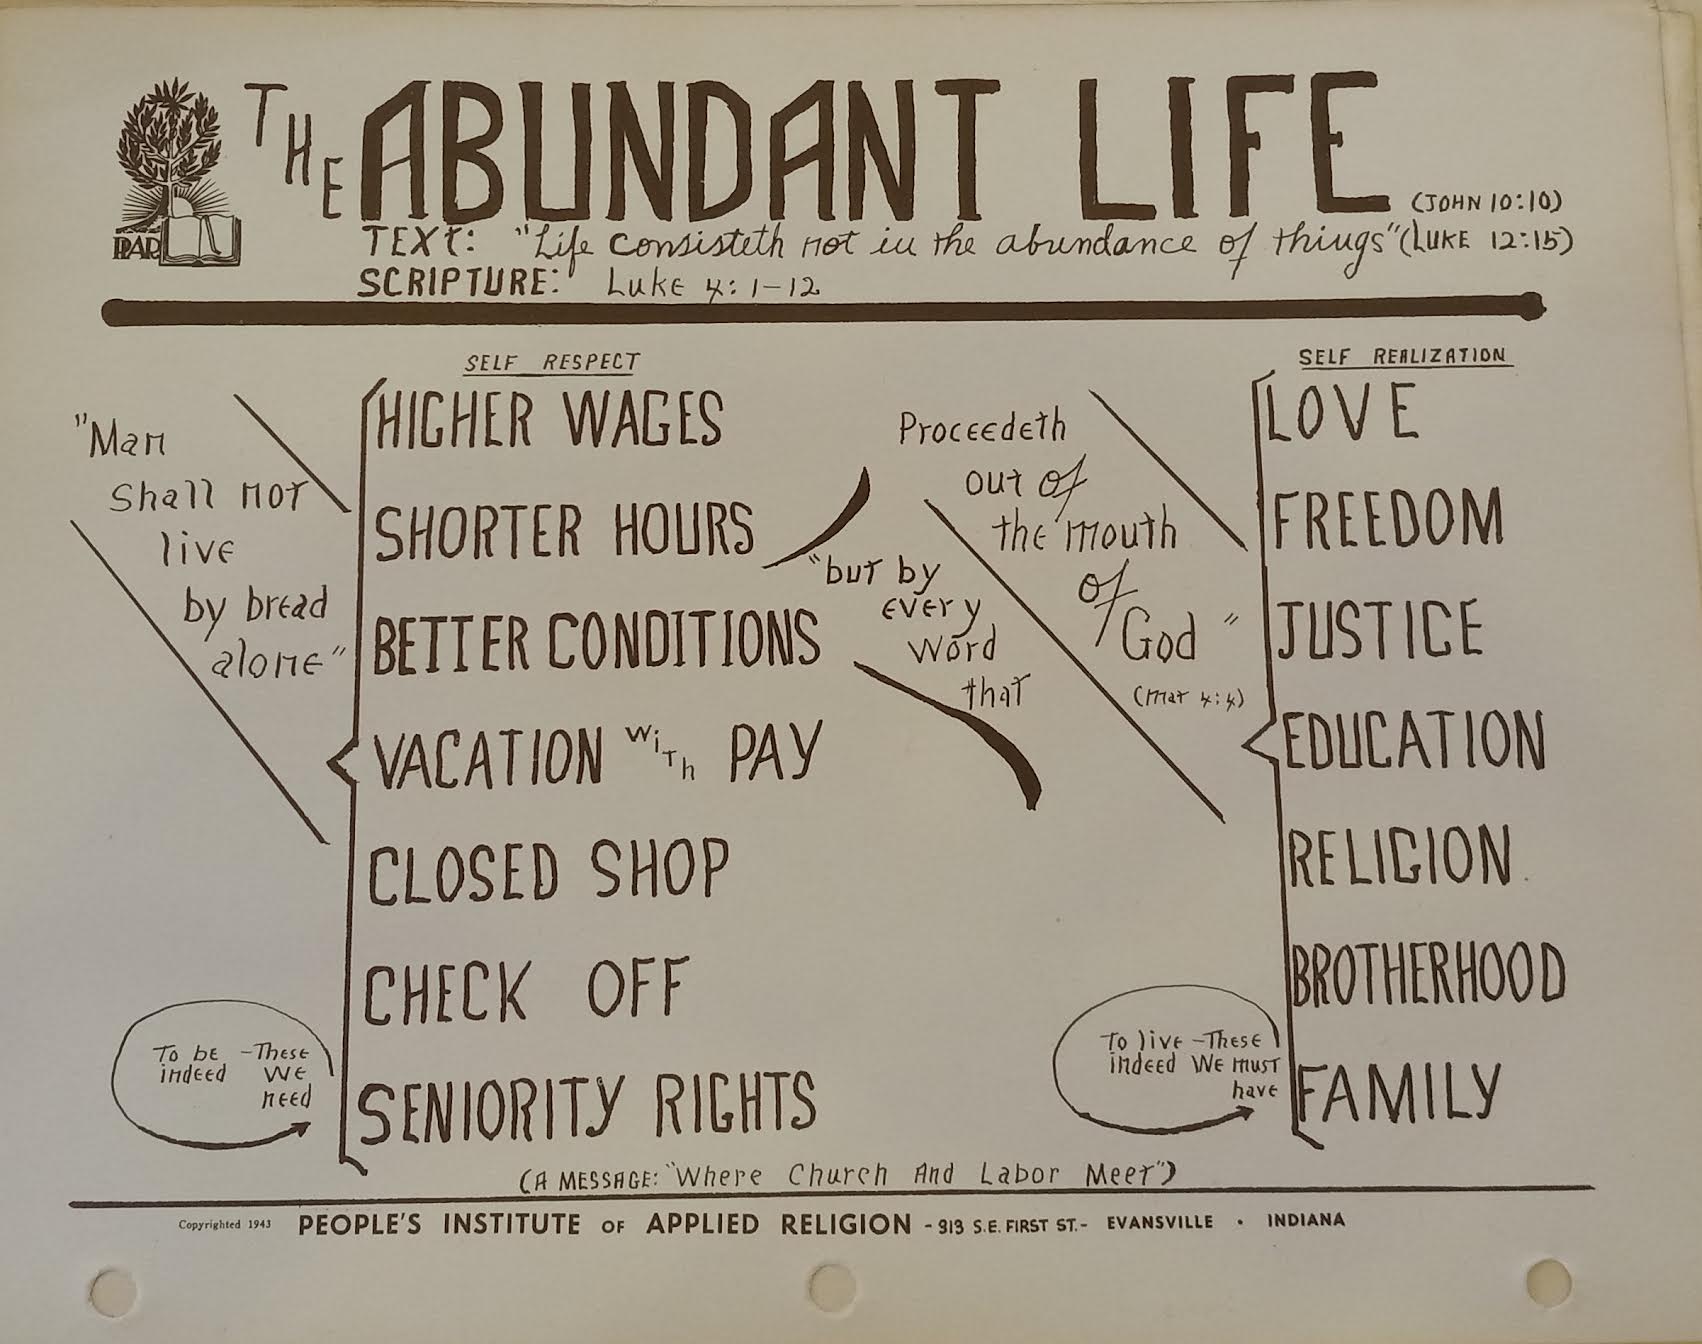 THE ABUNDANT LIFE (JOHN 10:10)
PIAR
TEXT: "Life consisteth not in the abundance of things" (LUKE 12:15)
SCRIPTURE: LUKE 4:1-12
"Man
shall not
live
by bread
alone"
SELF RESPECT
HIGHER WAGES
SHORTER HOURS
BETTER CONDITIONS
VACATION WITH PAY
CLOSED SHOP
CHECK OFF
SENIORITY RIGHTS
To be - These
indeed We
need
"but by
every
word
that
Proceedeth
out of
the mouth
of
God"
(Mat 4:4)
SELF REALIZATION
LOVE
FREEDOM
JUSTICE
EDUCATION
RELIGION
BROTHERHOOD
FAMILY
To live - These
indeed We must
have
(A MESSAGE: "Where Church And Labor Meet")
Copyrighted 1943 PEOPLE'S INSTITUTE OF APPLIED RELIGION - 313 S.E. FIRST ST. - EVANSVILLE • INDIANA